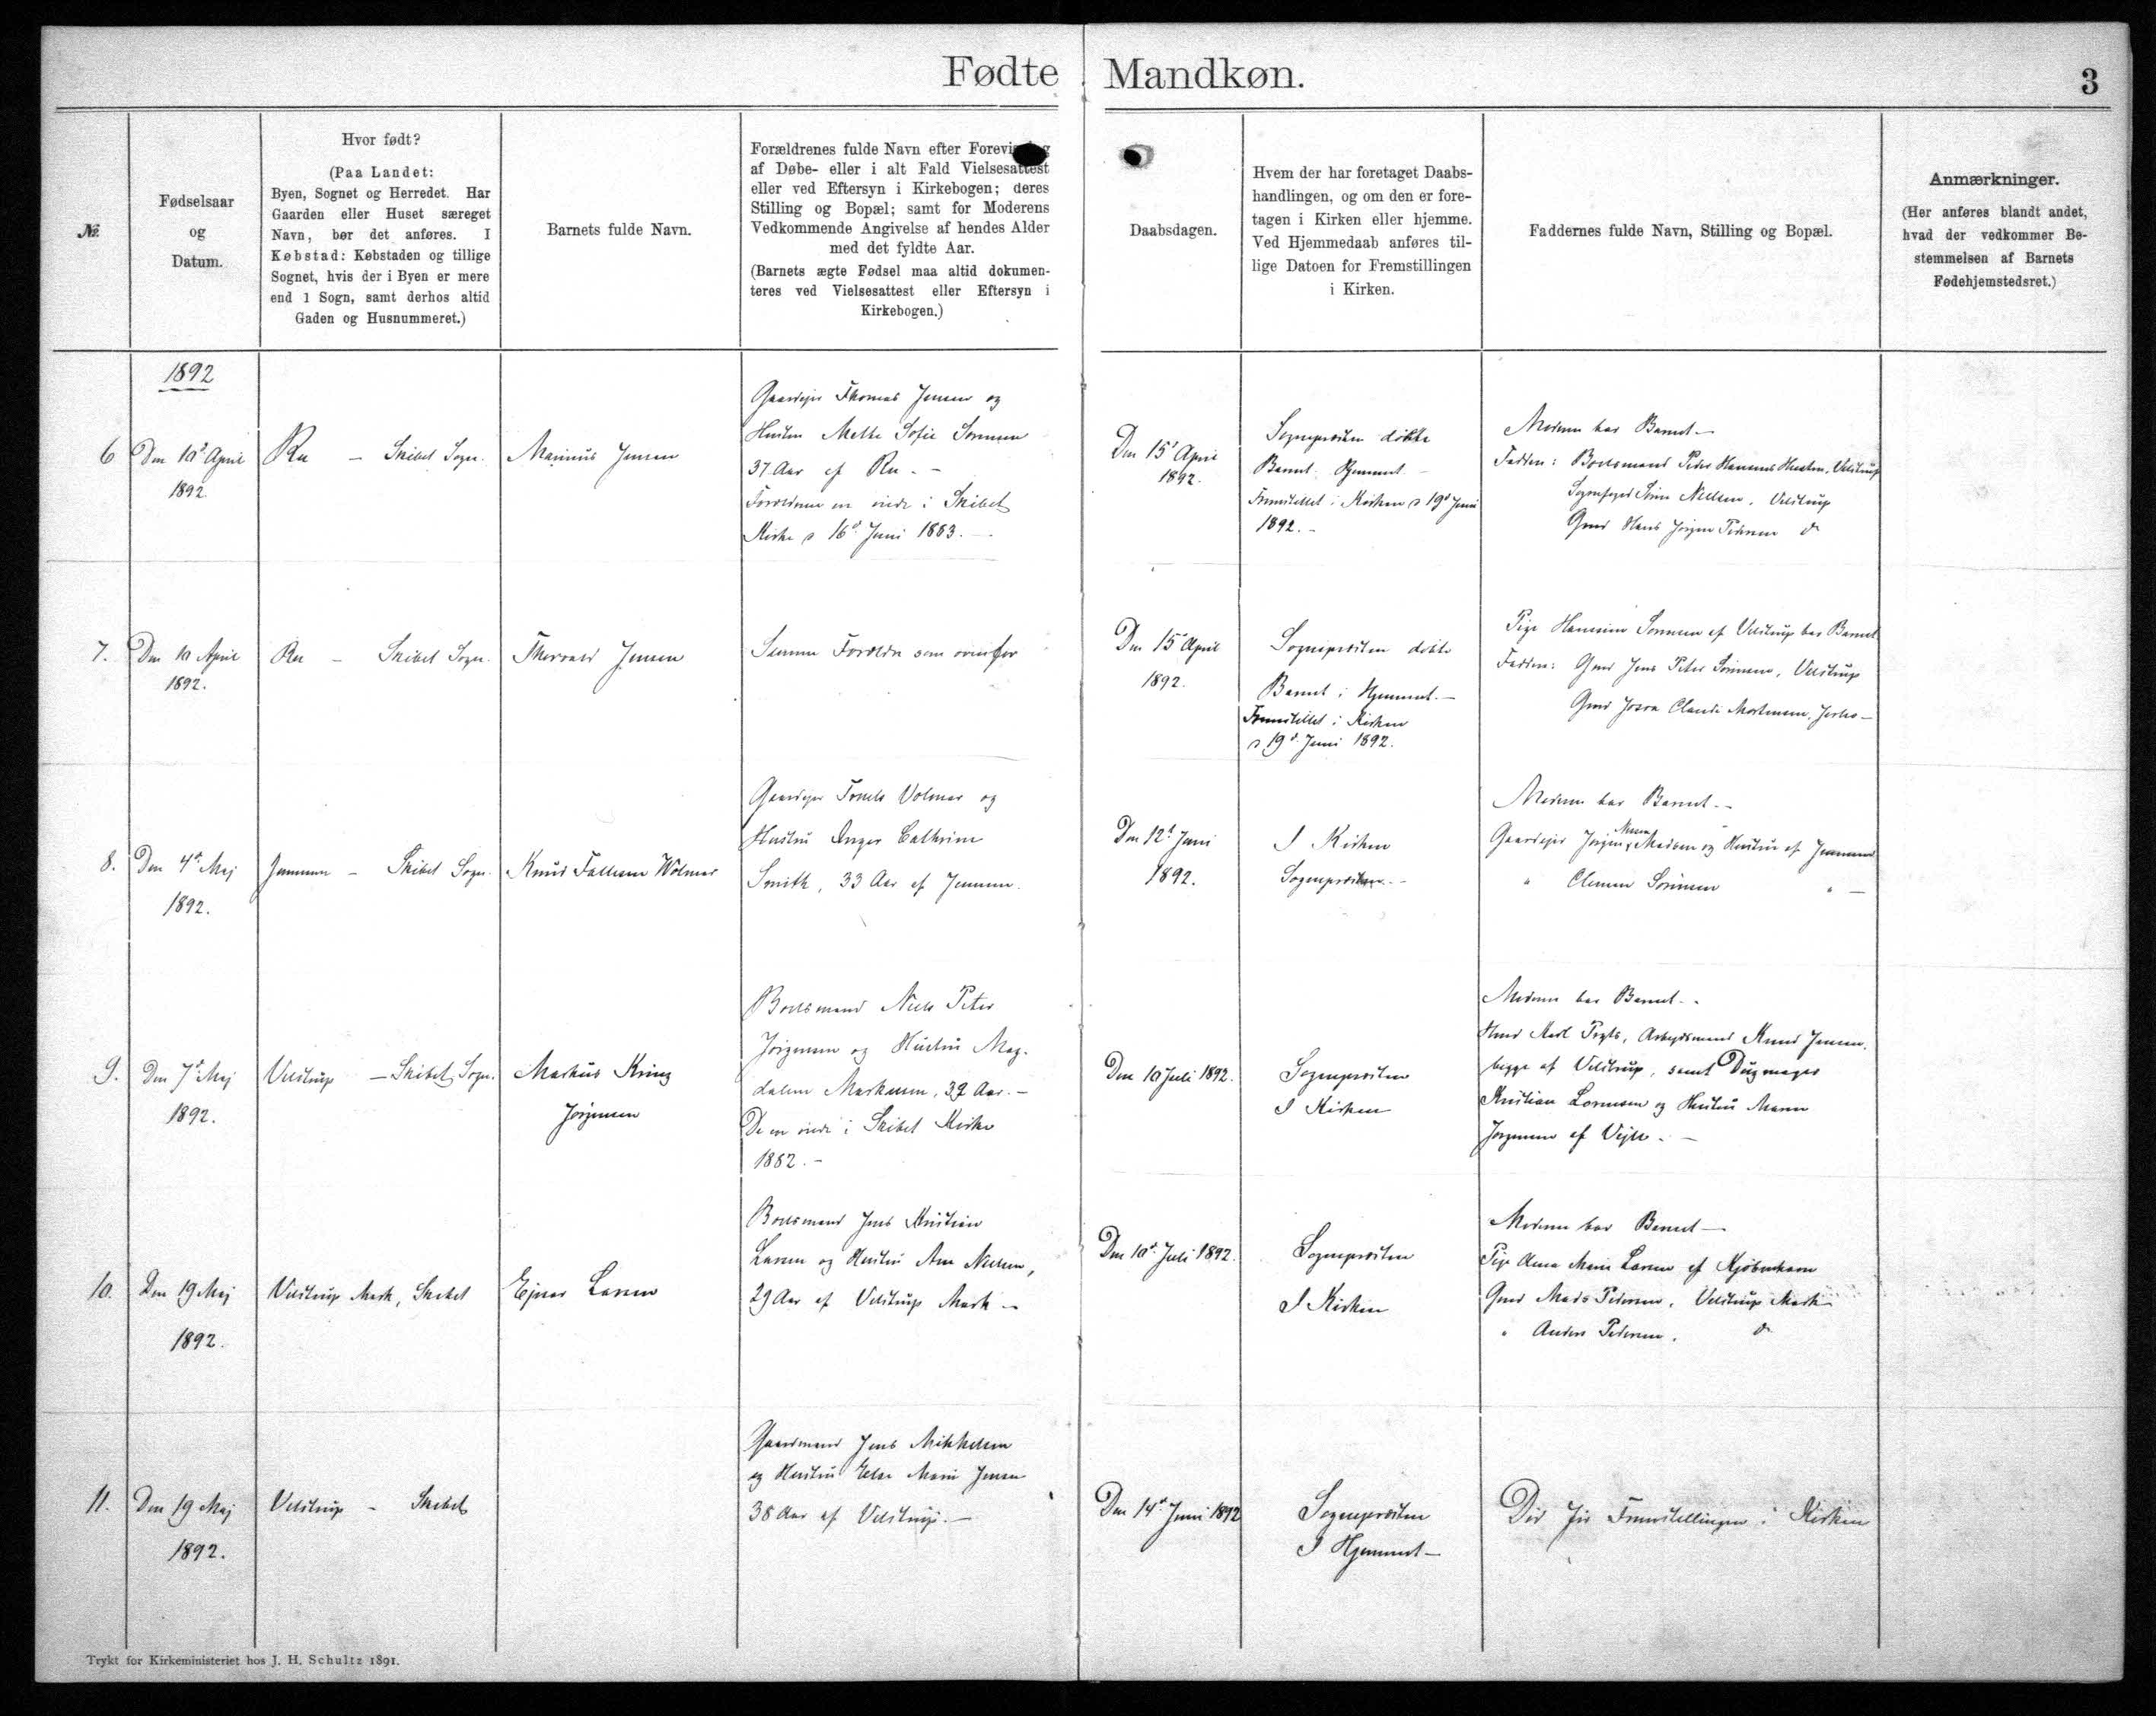 Fødte Mandkøn.
3
№
Fødselsaar
og
Datum.
Hvor født?
(Paa Landet:
Byen, Sognet og Herredet. Har
Gaarden eller Huset særeget
Navn, bør det anføres. I
Købstad: Købstaden og tillige
Sognet, hvis der i Byen er mere
end 1 Sogn, samt derhos altid
Gaden og Husnummeret.)
Barnets fulde Navn.
Forældrenes fulde Navn efter
af Døbe- eller i alt Fald Vielsesattest
eller ved Eftersyn i Kirkebogen; deres
Stilling og Bopæl; samt for Moderens
Vedkommende Angivelse af hendes Alder
med det fyldte Aar.
(Barnets ægte Fødsel maa altid dokumen-
teres ved Vielsesattest eller Eftersyn i
Kirkebogen.)
Daabsdagen.
Hvem der har foretaget Daabs-
handlingen, og om den er fore-
tagen i Kirken eller hjemme.
Ved Hjemmedaab anføres til-
lige Datoen for Fremstillingen
i Kirken.
Faddernes fulde Navn, Stilling og Bopæl.
Anmærkninger.
(Her anføres blandt andet,
hvad der vedkommer Be-
stemmelsen af Barnets
Fødehjemstedsret.)
1892
6
Den 10' April
1892.
Ru – Skibet Sogn.
Marinus Jensen
Gaardejer Thomas Jensen og
Hustru Mette Sofie Sørensen
37 Aar af Ru. –
Forældrene ere viede i Skibet
Kirke d 16d Juni 1883. –
Den 15' April
1892.
Sognepræsten døbte
Barnet Hjemmet –
Fremstillet i Kirken d 19d Juni
1892. –
Moderen bar Barnet –
Faddere: Boelsmand Peder Hansens Hustru, Vilstrup
Sognefoged Søren Nielsen, Vilstrup
Gmd Hans Jørgen Pedersen do
7.
Den 10 April
1892.
Ru – Skibet Sogn.
Thorvald Jensen
Samme Forældre som ovenfor
Den 15' April
1892.
Sognepræsten døbte
Barnet i Hjemmet –
Fremstillet i Kirken
d 19d Juni 1892.
Pige Hansine Sørensen af Vilstrup bar Barnet
Faddere: Gmd Jens Peter Sørensen, Vilstrup
Gmd Claudi Mortensen,
8.
Den 4d Maj
1892.
Jennum – Skibet Sogn.
Knud Wolmer
Gaardejer Troels Volmer og
Hustru Inger Cathrine
Smith, 33 Aar af Jennum.
Den 12d Juni
1892.
I Kirken
Sognepræsten –
Moderen bar Barnet –
Gaardejer Jørgen Madsen og Hustru af Jennum
" Clemen Sørensen " –
9.
Den 7d Maj
1892.
Vilstrup – Skibet Sogn.
Markus Kring
Jørgensen
Boelsmand Niels Peter
Jørgensen og Hustru Mag-
dalene Markussen, 39 Aar. –
De ere viede i Skibet Kirke
1882. –
Den 10 Juli 1892.
Sognepræsten
I Kirken
Moderen bar Barnet –
Arbejdsmand Knud Jensen,
begge af Vilstrup, samt
Kristian Lorensen og Hustru Maren
Jørgensen af Vejle. –
10.
Den 19 Maj
1892.
Vilstrup Mark, Skibet
Ejner Larsen
Boelsmand Jens Kristian
Larsen og Hustru Ane Nielsen,
29 Aar af Vilstrup Mark –
Den 10d Juli 1892.
Sognepræsten
I Kirken
Moderen bar Barnet –
Pige Anna Marie Larsen af Kjøbenhavn
Gmd Mads Pedersen, Vilstrup Mark
" Anders Pedersen, do
11.
Den 19 Maj
1892.
Vilstrup – Skibet
Gaardmand Jens Mikkelsen
og Hustru Else Marie Jensen
38 Aar af Vilstrup. –
Den 14d Juni 1892
Sognepræsten
I Hjemmet –
Død før Fremstillingen i Kirken
Trykt for Kirkeministeriet hos J. H. Schultz 1891.